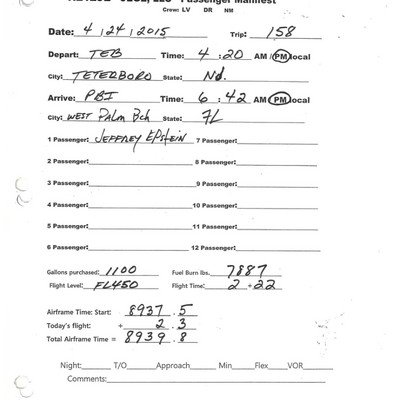 LLC - Passenger Manifest
Crew: LV DR NM
Date: 4/24/2015 Trip: 158
Depart: TEB Time: 4:20 AM / PM local
City: TETERBORO State: Nd.
Arrive: PBI Time: 6:42 AM PM local
City: WEST PALM Bch State: FL
1 Passenger: JEFFREY EPSTEIN 7 Passenger:
2 Passenger: 8 Passenger:
3 Passenger: 9 Passenger:
4 Passenger: 10 Passenger:
5 Passenger: 11 Passenger:
6 Passenger: 12 Passenger:
Gallons purchased: 1100 Fuel Burn lbs. 7887
Flight Level: FL450 Flight Time: 2 + 22
Airframe Time: Start: 8937.5
Today's flight: + 2.3
Total Airframe Time = 8939.8
Night: T/O Approach Min Flex VOR
Comments: